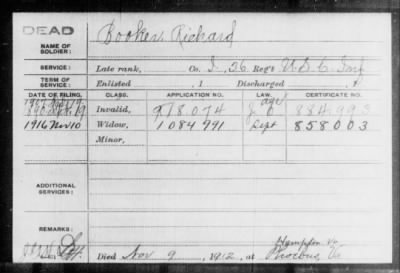 DEAD
NAME OF SOLDIER: Booker, Richard
SERVICE: Late rank, Co. I, 26 Reg't U.S.C. Inf
TERM OF SERVICE: Enlisted , 1 Discharged , 1
DATE OF FILING. CLASS. APPLICATION NO. LAW. CERTIFICATE NO.
Invalid, 918.074 884.993
1916 Nov 10 Widow, 1084991 Sept 858003
Minor,
ADDITIONAL SERVICES:
REMARKS:
Died Nov 9, 1912, at Hampton Va
Phoebus, Va